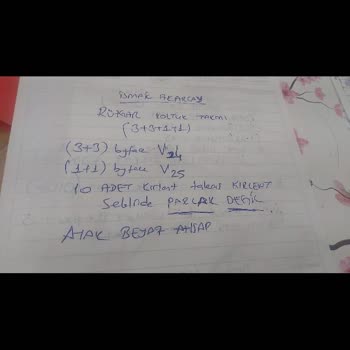 İSMAİL AKARÇAY
RÜZGAR KOLTUK TAKIMI
(3+3+1+1)
(3+3) byface V24
(1+1) byface V25
10 ADET Kırlent takımı KIRLENT
Şeklinde PARLAK DEĞİL
AYAK BEYAZ AHŞAP